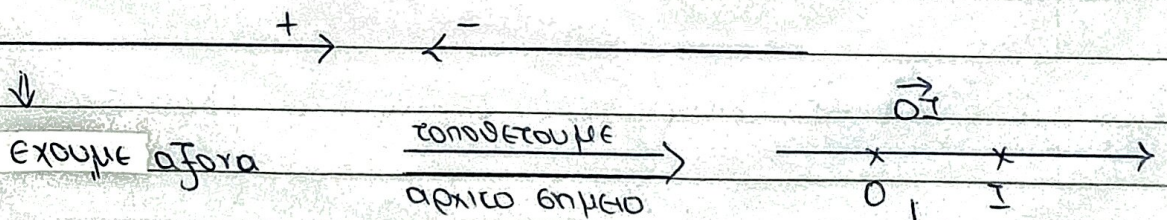 + −
⇓
$\overrightarrow{OI}$
εχουμε αξονα τοποθετουμε
αρχικο σημειο
O I